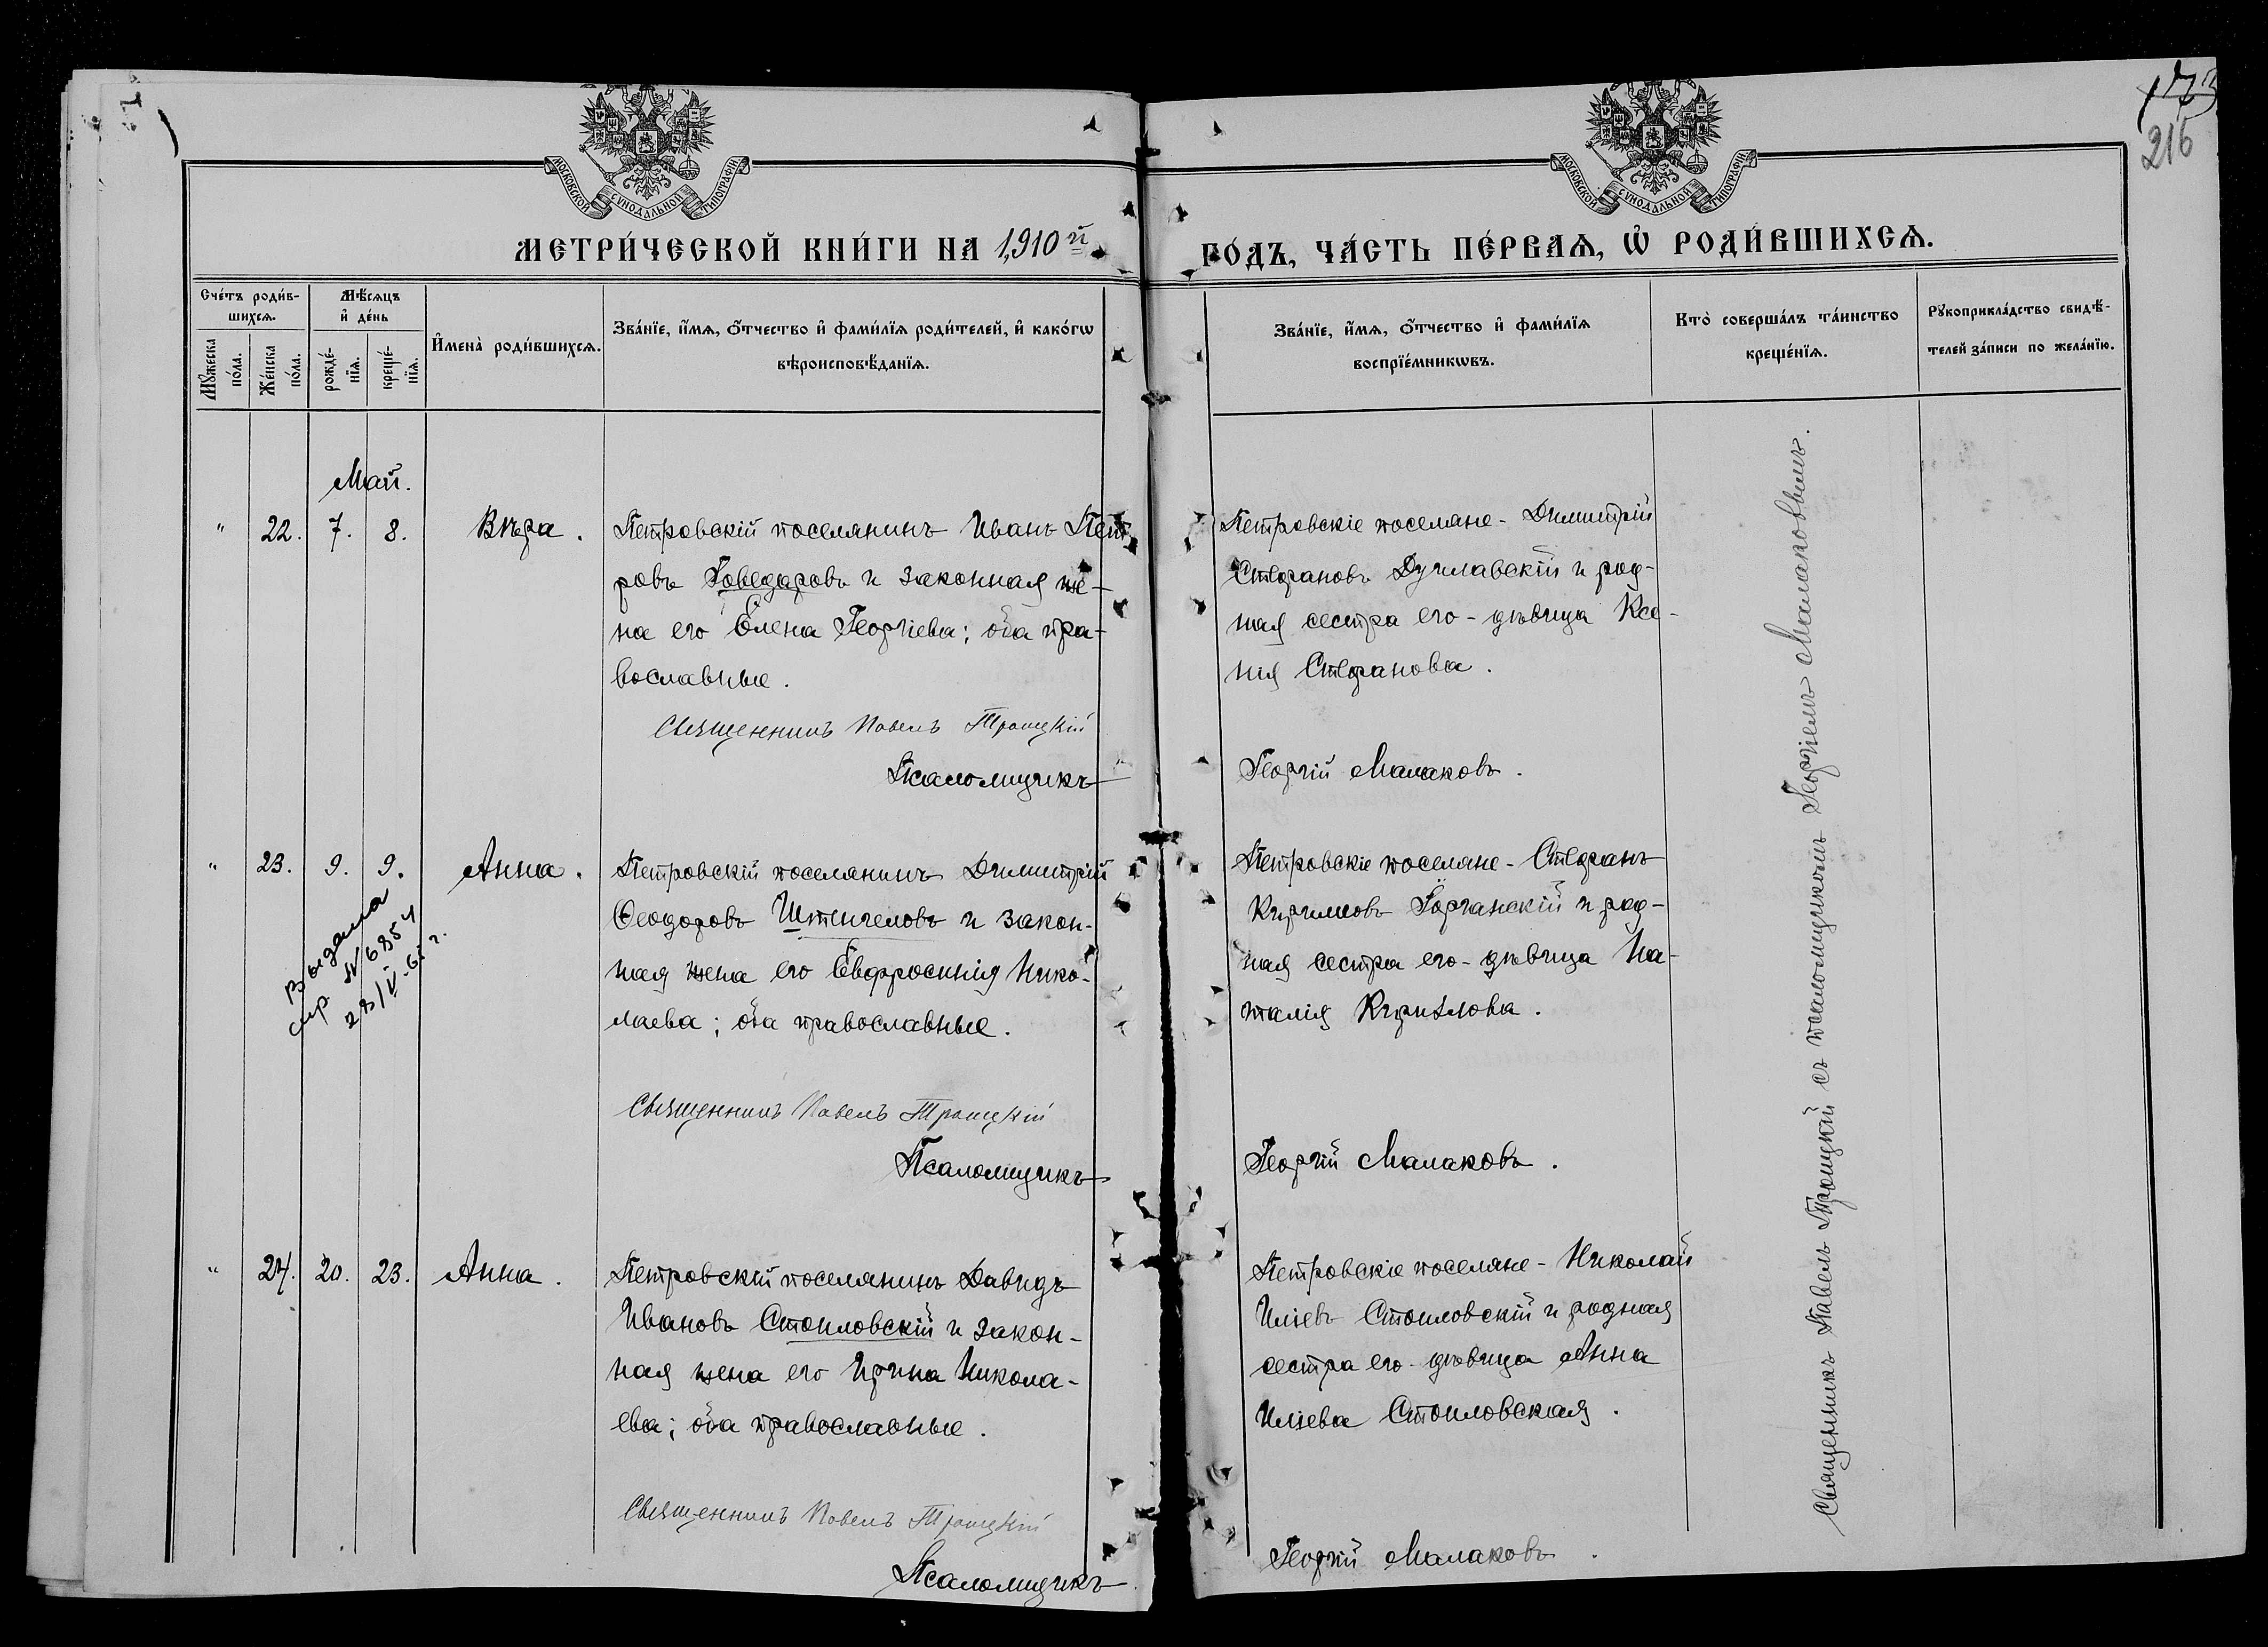 173
216
МОСКОВСКОЙ СѴНОДАЛЬНОЙ ТИПОГРАФІИ
МОСКОВСКОЙ СѴНОДАЛЬНОЙ ТИПОГРАФІИ
МЕТРИ́ЧЕСКОЙ КНИ́ГИ НА 1910й
ГО́ДЪ, ЧА́СТЬ ПЕ́РВАѦ, Ѡ҆ РОДИ́ВШИХСѦ.
Сче́тъ роди́в-
шихсѧ.
Мѣ́сѧцъ
и҆ де́нь
Мꙋ́жеска
по́ла.
Же́нска
по́ла.
рожде́-
нїѧ.
креще́-
нїѧ.
И҆мена̀ роди́вшихсѧ.
Зва́нїе, и҆́мѧ, ѻ҆́тчество и҆ фами́лїѧ роди́телей, и҆ како́гѡ
вѣроисповѣ́данїѧ.
Зва́нїе, и҆́мѧ, ѻ҆́тчество и҆ фами́лїѧ
воспрїе́мникѡвъ.
Кто̀ соверша́лъ та́инство
креще́нїѧ.
Рꙋкоприкла́дство свидѣ́-
телей за́писи по жела́нїю.
Май.
" 22. 7. 8. Вѣра.
Петровскій поселянинъ Иванъ Пет-
ровъ Говедаровъ и законная же-
на его Елена Георгіева; оба пра-
вославные.
Священникъ Павелъ Троицкій
Псаломщикъ
Петровскіе поселяне - Димитрій
Стефановъ Дуплавскій и род-
ная сестра его - дѣвица Ксе-
нія Стефанова.
Георгій Малаковъ.
" 23. 9. 9. Анна.
Выдана
спр. № 6854
28/V-65 г.
Петровскій поселянинъ Димитрій
Ѳеодоровъ Штенгеловъ и закон-
ная жена его Евфросинія Нико-
лаева; оба православные.
Священникъ Павелъ Троицкій
Псаломщикъ
Петровскіе поселяне - Стефанъ
Кирилловъ Горганскій и род-
ная сестра его - дѣвица На-
талія Кирилова.
Георгій Малаковъ.
" 24. 20. 23. Анна.
Петровскій поселянинъ Давидъ
Ивановъ Стоиловскій и закон-
ная жена его Ирина Никола-
ева; оба православные.
Священникъ Павелъ Троицкій
Псаломщикъ
Петровскіе поселяне - Николай
Иліевъ Стоиловскій и родная
сестра его - дѣвица Анна
Иліева Стоиловская.
Георгій Малаковъ.
Священникъ Павелъ Троицкій съ псаломщикомъ Георгіемъ Малаковымъ.